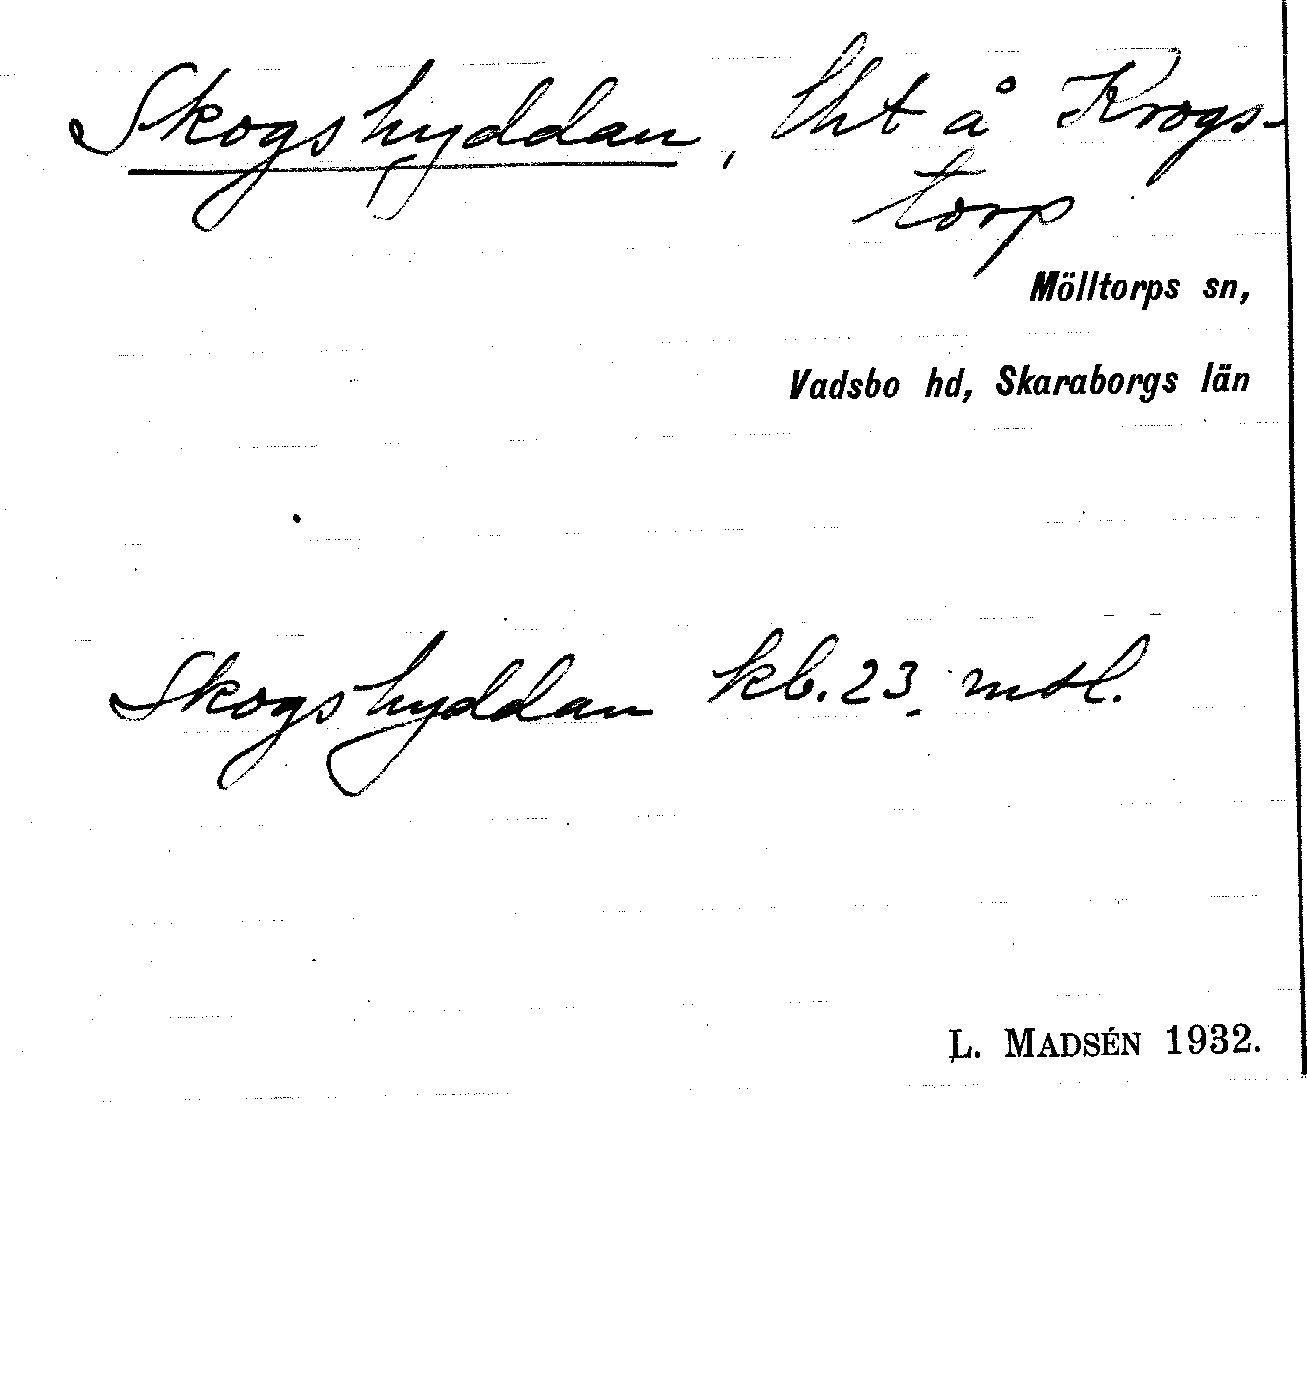 Skogshyddan, lht å Krogs-
torp
Mölltorps sn,
Vadsbo hd, Skaraborgs län
Skogshyddan kb. 23. mtl.
L. MADSÉN 1932.